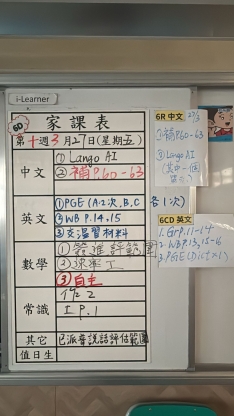 i-Learner
6D
家課表
第十週3月27日(星期五)
中文
① Lango AI
② 補P.60-63
英文
①PGE(A:2次,B,C各1次)
②WB P.14,15
③交溫習材料
數學
①簽進評範圍
②課業工
③自主
常識
作2
工 P.1
其它
已派普說話評估範圍
值日生
6R 中文 27/3
①補P.60-63
② Lango AI
6CD 英文
1. Grp.11-14
2. WB P.13, 15-16
3. PGE